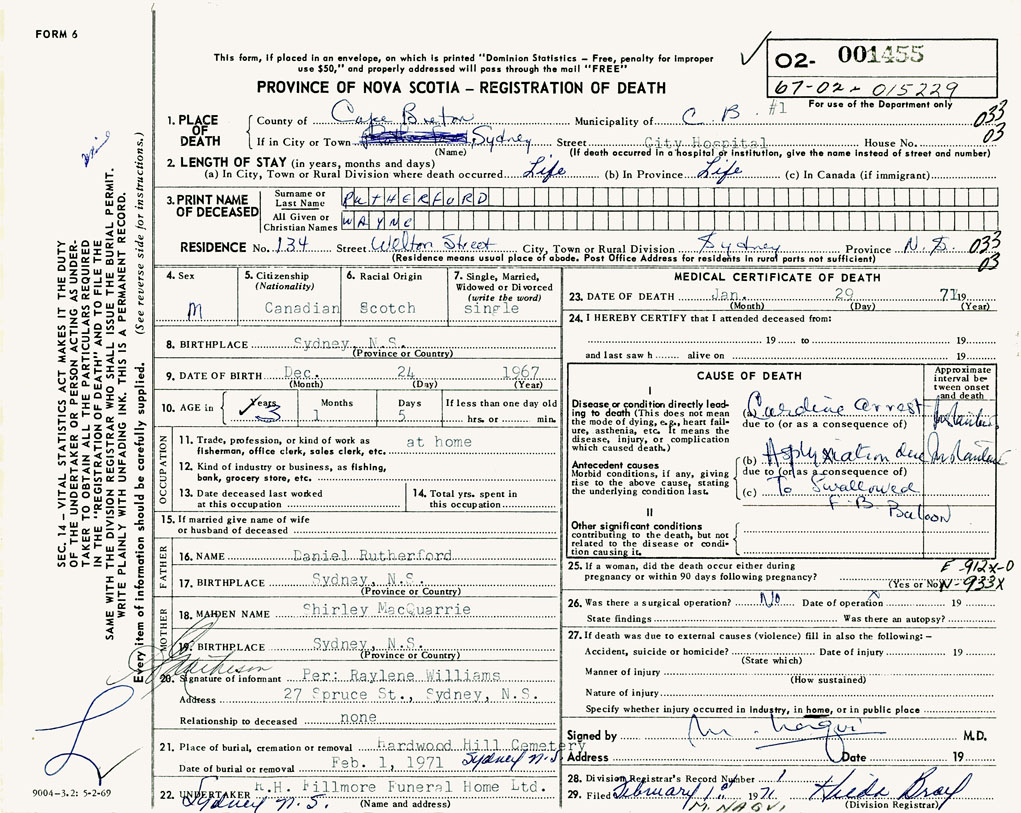 FORM 6
This form, if placed in an envelope, on which is printed "Dominion Statistics – Free, penalty for improper
use $50," and properly addressed will pass through the mail "FREE"
PROVINCE OF NOVA SCOTIA – REGISTRATION OF DEATH
02- 001455
67-02-015229
For use of the Department only
#1
1. PLACE OF DEATH
County of Cape Breton Municipality of C B. 033
If in City or Town Sydney Street City Hospital House No. 03
(Name) (If death occurred in a hospital or institution, give the name instead of street and number)
2. LENGTH OF STAY (in years, months and days)
(a) In City, Town or Rural Division where death occurred Life (b) In Province Life (c) In Canada (if immigrant)
3. PRINT NAME OF DECEASED
Surname or Last Name RUTHERFORD
All Given or Christian Names WAYNE
RESIDENCE No. 134 Street Welton Street City, Town or Rural Division Sydney Province N.S. 033
(Residence means usual place of abode. Post Office Address for residents in rural parts not sufficient) 03
4. Sex M
5. Citizenship (Nationality) Canadian
6. Racial Origin Scotch
7. Single, Married, Widowed or Divorced (write the word) single
8. BIRTHPLACE Sydney, N.S.
(Province or Country)
9. DATE OF BIRTH Dec. 24 1967
(Month) (Day) (Year)
10. AGE in Years 3 Months 1 Days 5 If less than one day old hrs. or min.
OCCUPATION
11. Trade, profession, or kind of work as fisherman, office clerk, sales clerk, etc. at home
12. Kind of industry or business, as fishing, bank, grocery store, etc.
13. Date deceased last worked at this occupation
14. Total yrs. spent in this occupation
15. If married give name of wife or husband of deceased
FATHER
16. NAME Daniel Rutherford
17. BIRTHPLACE Sydney, N.S.
(Province or Country)
MOTHER
18. MAIDEN NAME Shirley MacQuarrie
19. BIRTHPLACE Sydney, N.S.
(Province or Country)
20. Signature of informant Per: Raylene Williams
Address 27 Spruce St., Sydney, N.S.
Relationship to deceased none
21. Place of burial, cremation or removal Hardwood Hill Cemetery
Date of burial or removal Feb. 1, 1971 Sydney N.S.
22. UNDERTAKER R.H. Fillmore Funeral Home Ltd.
Sydney N.S. (Name and address)
MEDICAL CERTIFICATE OF DEATH
23. DATE OF DEATH Jan. 29 71 19
(Month) (Day) (Year)
24. I HEREBY CERTIFY that I attended deceased from:
19 to 19
and last saw h alive on 19
CAUSE OF DEATH
Approximate interval between onset and death
I
Disease or condition directly leading to death (This does not mean the mode of dying, e.g., heart failure, asthenia, etc. It means the disease, injury, or complication which caused death.)
(a) Cardiac arrest
due to (or as a consequence of)
Antecedent causes
Morbid conditions, if any, giving rise to the above cause, stating the underlying condition last.
(b) due
due to (or as a consequence of)
(c) To Swallowed
F.B. Balloon
II
Other significant conditions contributing to the death, but not related to the disease or condition causing it.
25. If a woman, did the death occur either during pregnancy or within 90 days following pregnancy? (Yes or No)
E-912X-0
N-933X
26. Was there a surgical operation? No Date of operation 19
State findings Was there an autopsy?
27. If death was due to external causes (violence) fill in also the following: –
Accident, suicide or homicide? Date of injury 19
(State which)
Manner of injury
(How sustained)
Nature of injury
Specify whether injury occurred in industry, in home, or in public place
Signed by M. Naqvi M.D.
Address Date 19
28. Division Registrar's Record Number 1
29. Filed February 1st 1971 Hilda
M. NAQVI (Division Registrar)
SEC. 14 – VITAL STATISTICS ACT MAKES IT THE DUTY
OF THE UNDERTAKER OR PERSON ACTING AS UNDER-
TAKER TO OBTAIN ALL THE PARTICULARS REQUIRED
IN THE "REGISTRATION OF DEATH" AND TO FILE THE
SAME WITH THE DIVISION REGISTRAR WHO SHALL ISSUE THE BURIAL PERMIT.
WRITE PLAINLY WITH UNFADING INK. THIS IS A PERMANENT RECORD.
Every item of information should be carefully supplied. (See reverse side for instructions.)
9004-3.2: 5-2-69